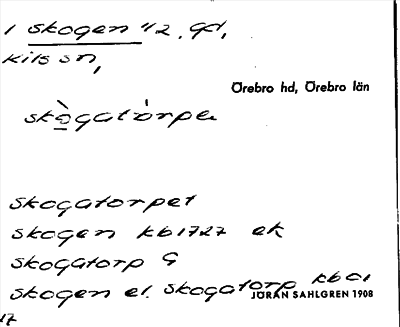 1 skogen 1/2, gd,
Kils sn,
Örebro hd, Örebro län
skò̱gatòrpa
skogatorpet
skogen kb 1727 ek
skogatorp G
skogen el. skogatorp kb C1
JÖRAN SAHLGREN 1908
17